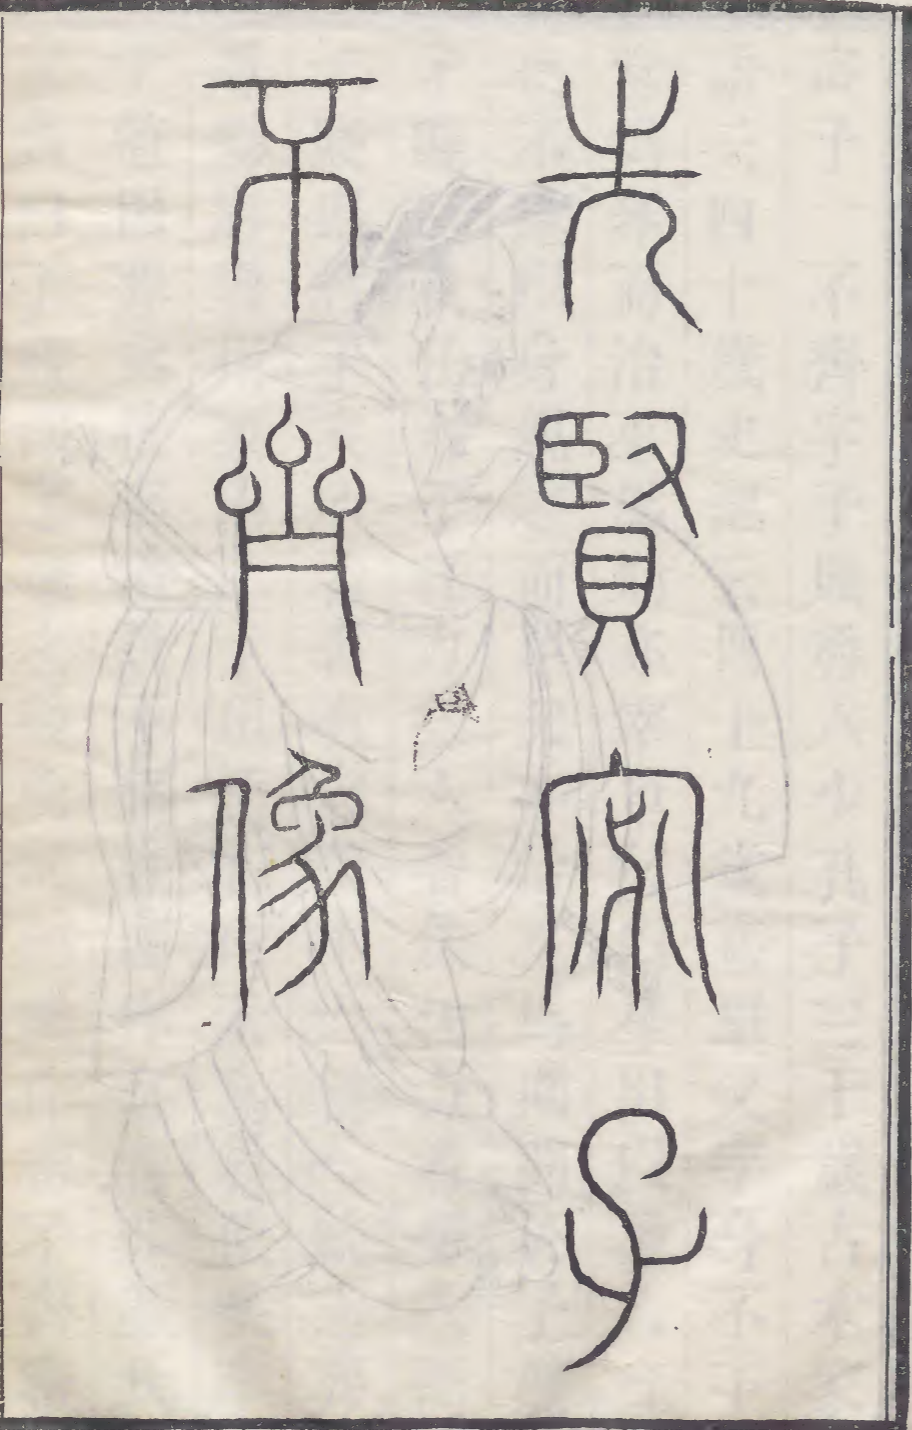 先賢宓子
不齊像